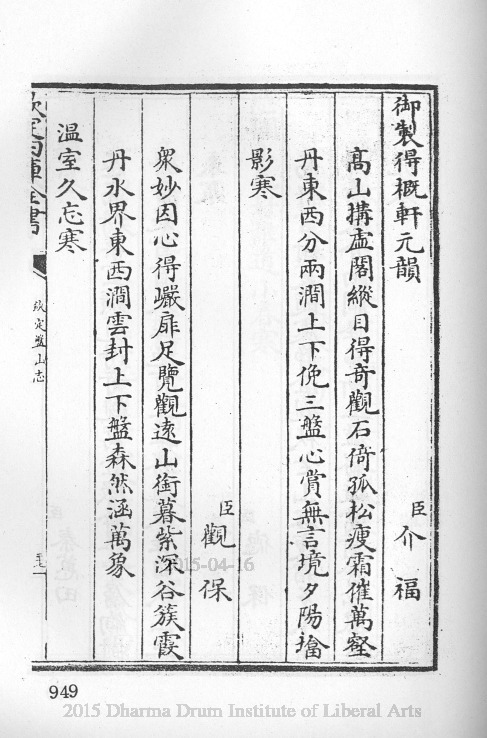 御製得概軒元韻
臣介福
高山搆虛閣縱目得奇觀石倚孤松瘦霜催萬壑
丹東西分兩澗上下俛三盤心賞無言境夕陽檐
影寒
臣觀保
衆妙因心得巖扉足覽觀遠山銜暮紫深谷簇霞
丹水界東西澗雲封上下盤森然涵萬象
溫室久忘寒
欽定四庫全書
欽定盤山志
2015-04-16
949
2015 Dharma Drum Institute of Liberal Arts